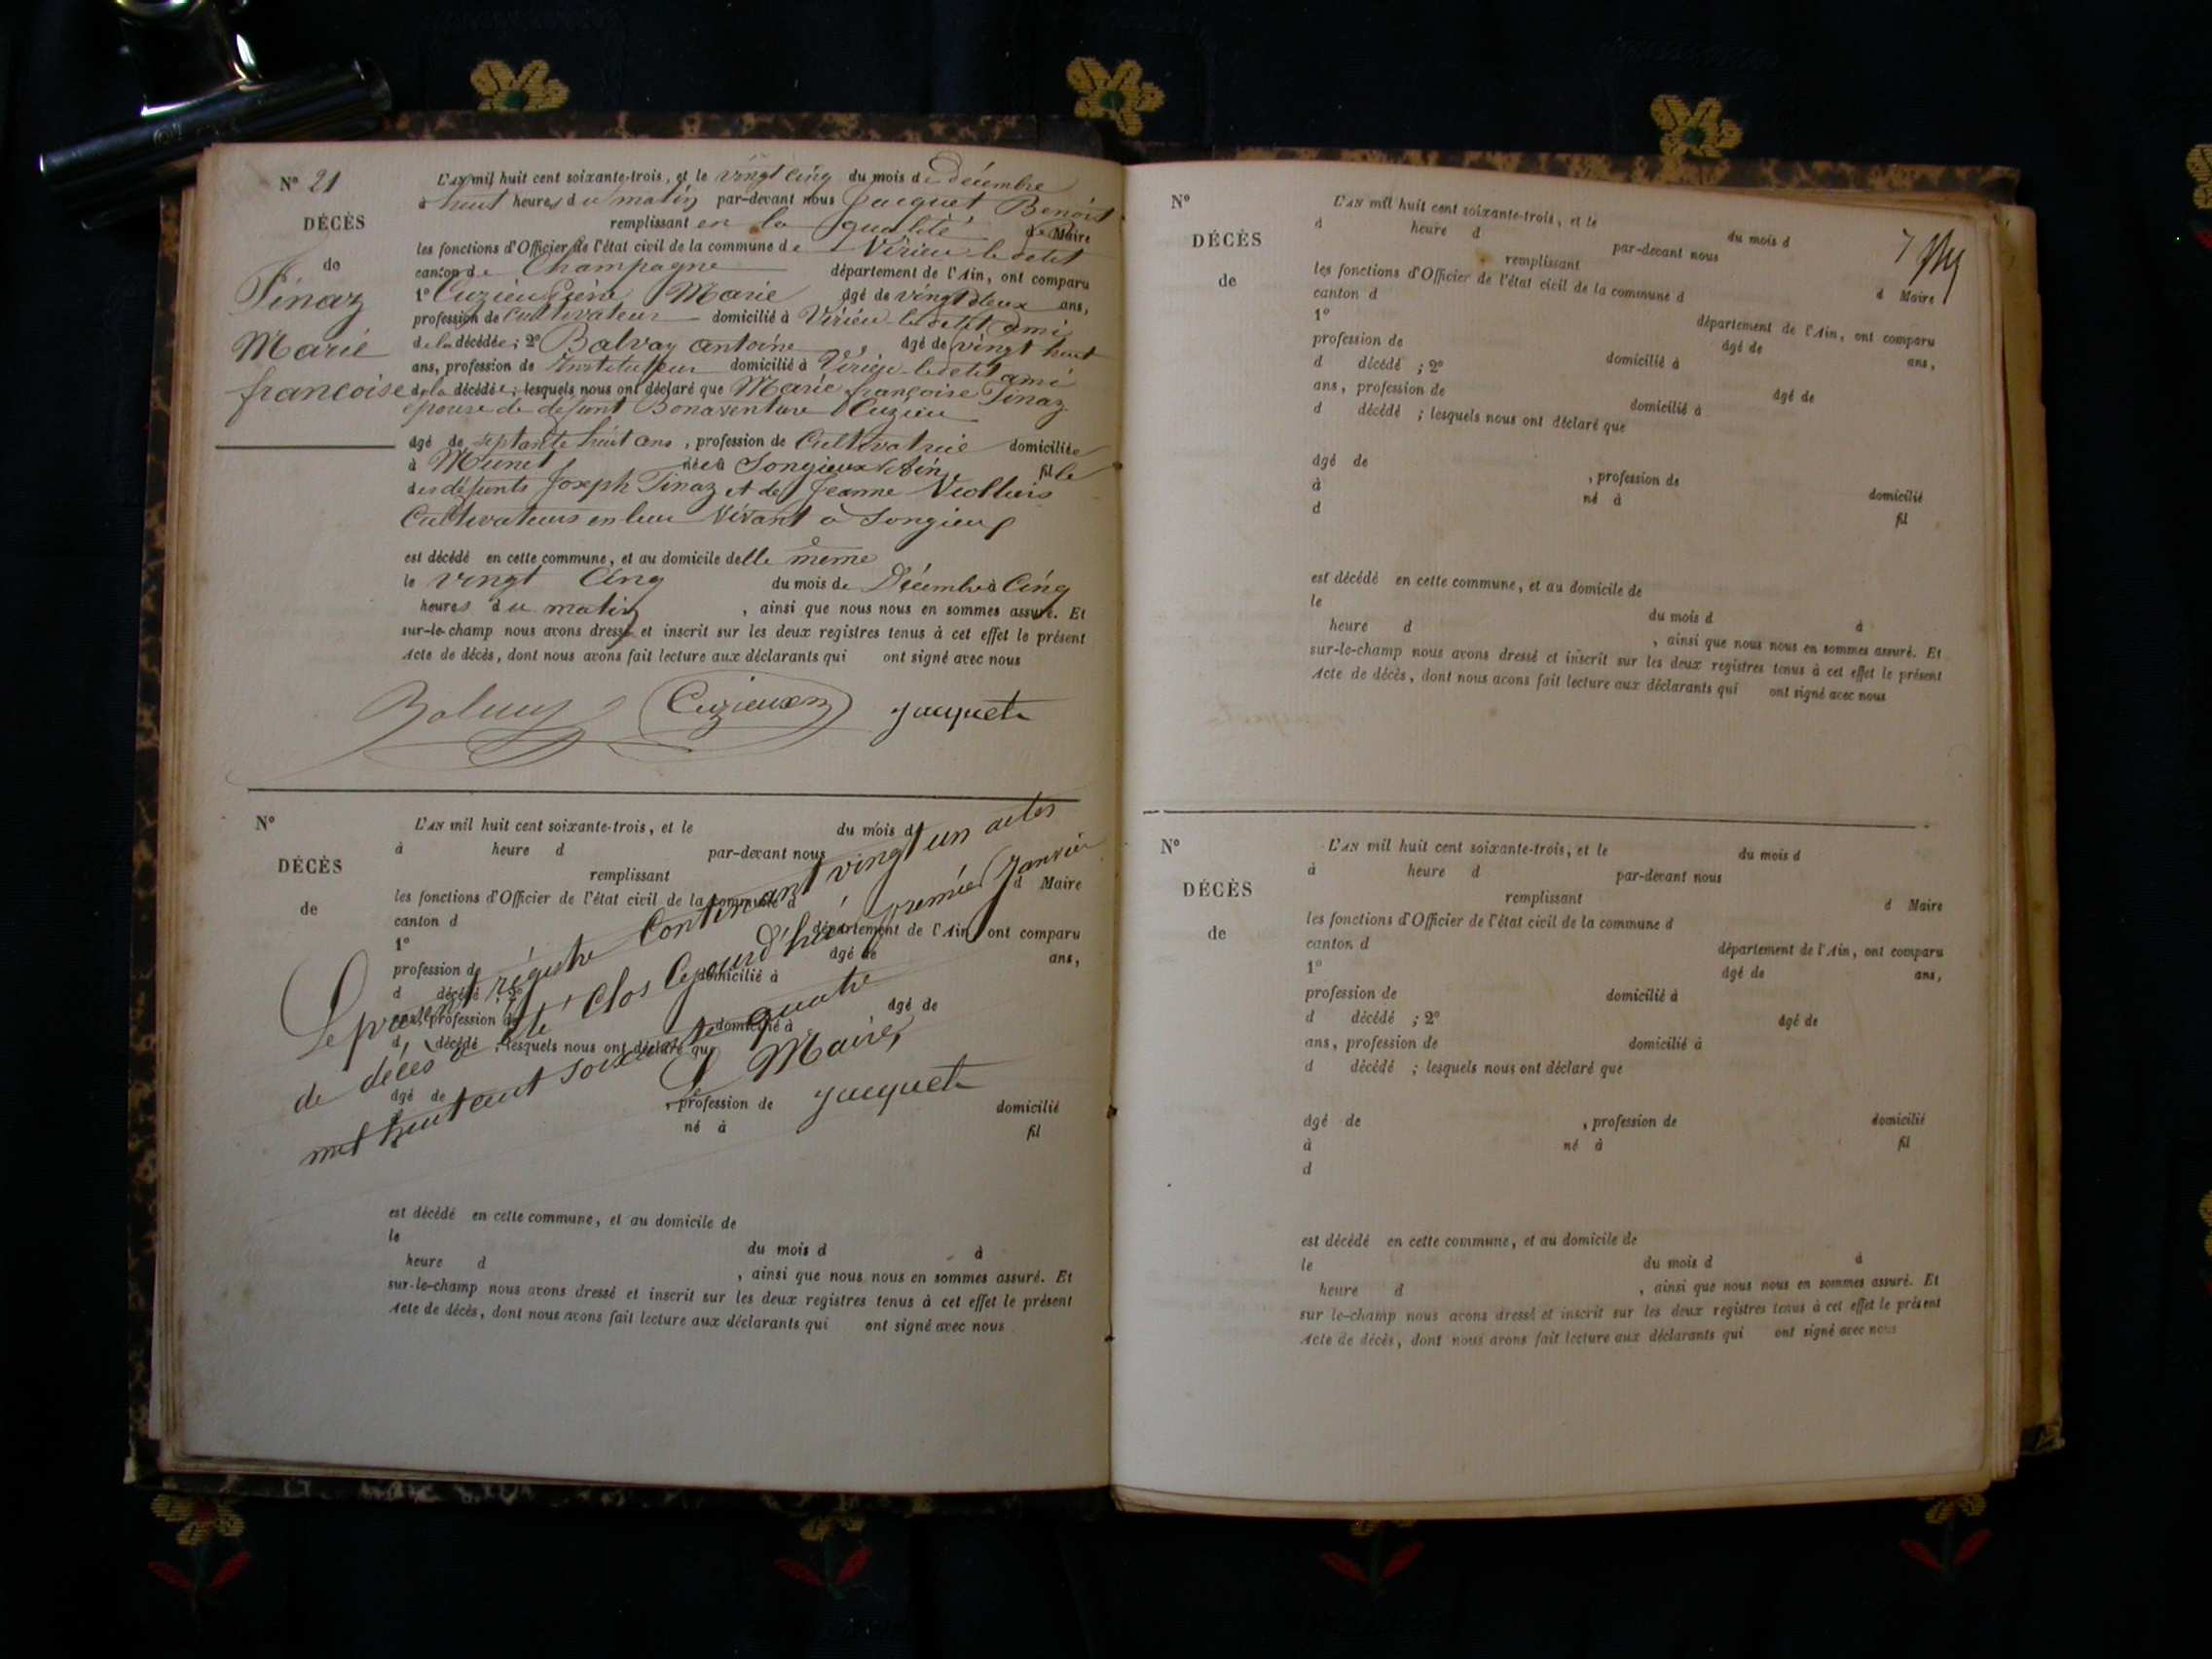 N° 21
DÉCÈS
de
Tinaz
Marie
françoise
L'AN mil huit cent soixante-trois, et le vingt cinq du mois de décembre
à huit heures du matin par-devant nous Jacquet Benoit
remplissant en la qualité de Maire
les fonctions d'Officier de l'état civil de la commune de Virieu-le-petit
canton de Champagne département de l'Ain, ont comparu
1° Cuzieu Marie âgé de vingt deux ans,
profession de Cultivateur domicilié à Virieu-le-petit ami
de la décédée; 2° Balvay antoine, âgé de vingt huit
ans, profession de Instituteur domicilié à Virieu-le-petit ami
de la décédée; lesquels nous ont déclaré que Marie françoise Tinaz
épouse de défunt Bonaventure Cuzieu
âgé de septante huit ans, profession de Cultivatrice domiciliée
à Munet née à Songieux fille
des défunts Joseph Tinaz et de Jeanne
Cultivateurs en leur vivant à Songieux
est décédé en cette commune, et au domicile delle même
le vingt Cinq du mois de Décembre à Cinq
heures du matin, ainsi que nous nous en sommes assuré. Et
sur-le-champ nous avons dressé et inscrit sur les deux registres tenus à cet effet le présent
Acte de décès, dont nous avons fait lecture aux déclarants qui ont signé avec nous
Balvay Cuzieu jacquet
N°
DÉCÈS
de
L'AN mil huit cent soixante-trois, et le du mois d
à heure d par-devant nous
remplissant d Maire
les fonctions d'Officier de l'état civil de la commune d
canton d département de l'Ain, ont comparu
1° âgé de ans,
profession de domicilié à
d décédé; 2° âgé de
ans, profession de domicilié à
d décédé; lesquels nous ont déclaré que
âgé de, profession de domicilié
né à fil
Le présent régistre Contenant vingt un actes
de décès a été Clos Cejourd'hui premier Janvier
mil huit cent soixante quatre
Le Maire,
jacquet
est décédé en cette commune, et au domicile de
le du mois d à
heure d, ainsi que nous nous en sommes assuré. Et
sur-le-champ nous avons dressé et inscrit sur les deux registres tenus à cet effet le présent
Acte de décès, dont nous avons fait lecture aux déclarants qui ont signé avec nous
7
N°
DÉCÈS
de
L'AN mil huit cent soixante-trois, et le du mois d
à heure d par-devant nous
remplissant d Maire
les fonctions d'Officier de l'état civil de la commune d
canton d département de l'Ain, ont comparu
1° âgé de ans,
profession de domicilié à
d décédé; 2° âgé de
ans, profession de domicilié à
d décédé; lesquels nous ont déclaré que
âgé de, profession de domicilié
à né à fil
d
est décédé en cette commune, et au domicile de
le du mois d à
heure d, ainsi que nous nous en sommes assuré. Et
sur-le-champ nous avons dressé et inscrit sur les deux registres tenus à cet effet le présent
Acte de décès, dont nous avons fait lecture aux déclarants qui ont signé avec nous
N°
DÉCÈS
de
L'AN mil huit cent soixante-trois, et le du mois d
à heure d par-devant nous
remplissant d Maire
les fonctions d'Officier de l'état civil de la commune d
canton d département de l'Ain, ont comparu
1° âgé de ans,
profession de domicilié à
d décédé; 2° âgé de
ans, profession de domicilié à
d décédé; lesquels nous ont déclaré que
âgé de, profession de domicilié
à né à fil
d
est décédé en cette commune, et au domicile de
le du mois d à
heure d, ainsi que nous nous en sommes assuré. Et
sur le-champ nous avons dressé et inscrit sur les deux registres tenus à cet effet le présent
Acte de décès, dont nous avons fait lecture aux déclarants qui ont signé avec nous